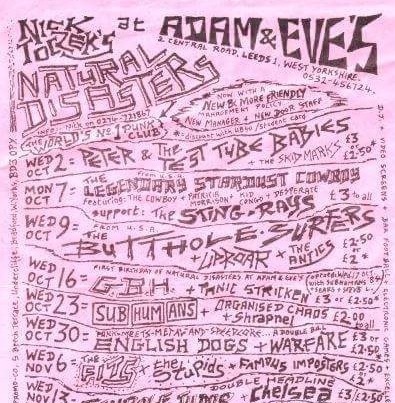 NICK TOCZEK'S at ADAM & EVE'S
2 CENTRAL ROAD, LEEDS 1, WEST YORKSHIRE.
0532-456724.
NATURAL DISASTERS
NOW WITH A
NEW & MORE FRIENDLY
MANAGEMENT POLICY
NEW MANAGER + NEW DOOR STAFF
THE WORLD'S No 1 PUNK CLUB
WED OCT 2 = PETER & THE TEST TUBE BABIES + THE SKID MARKS £3 £2.50*
from U.S.A.
MON OCT 7 = THE LEGENDARY STARDUST COWBOY £3 to all
featuring: THE COWBOY +
support: THE STING-RAYS
FROM U.S.A.
WED OCT 9 = THE BUTTHOLE SURFERS £2.50
+ UPROAR + THE ANTICS £2*
FIRST BIRTHDAY OF NATURAL DISASTERS AT ADAM & EVE'S
WED OCT 16 = G.B.H. + PANIC STRICKEN £3 or £2.50*
WED OCT 23 = SUBHUMANS + ORGANISED CHAOS £2.00 to all
+ Shrapnel
PUNK-MEETS-METAL-AND-SPEEDCORE... A DOUBLE BILL
WED OCT 30 = ENGLISH DOGS + WARFARE £3 or £2.50
WED NOV 6 = THE FITS + the STUPIDS + FAMOUS IMPOSTERS £2.50
DOUBLE HEADLINE
WED NOV 13 = + Chelsea